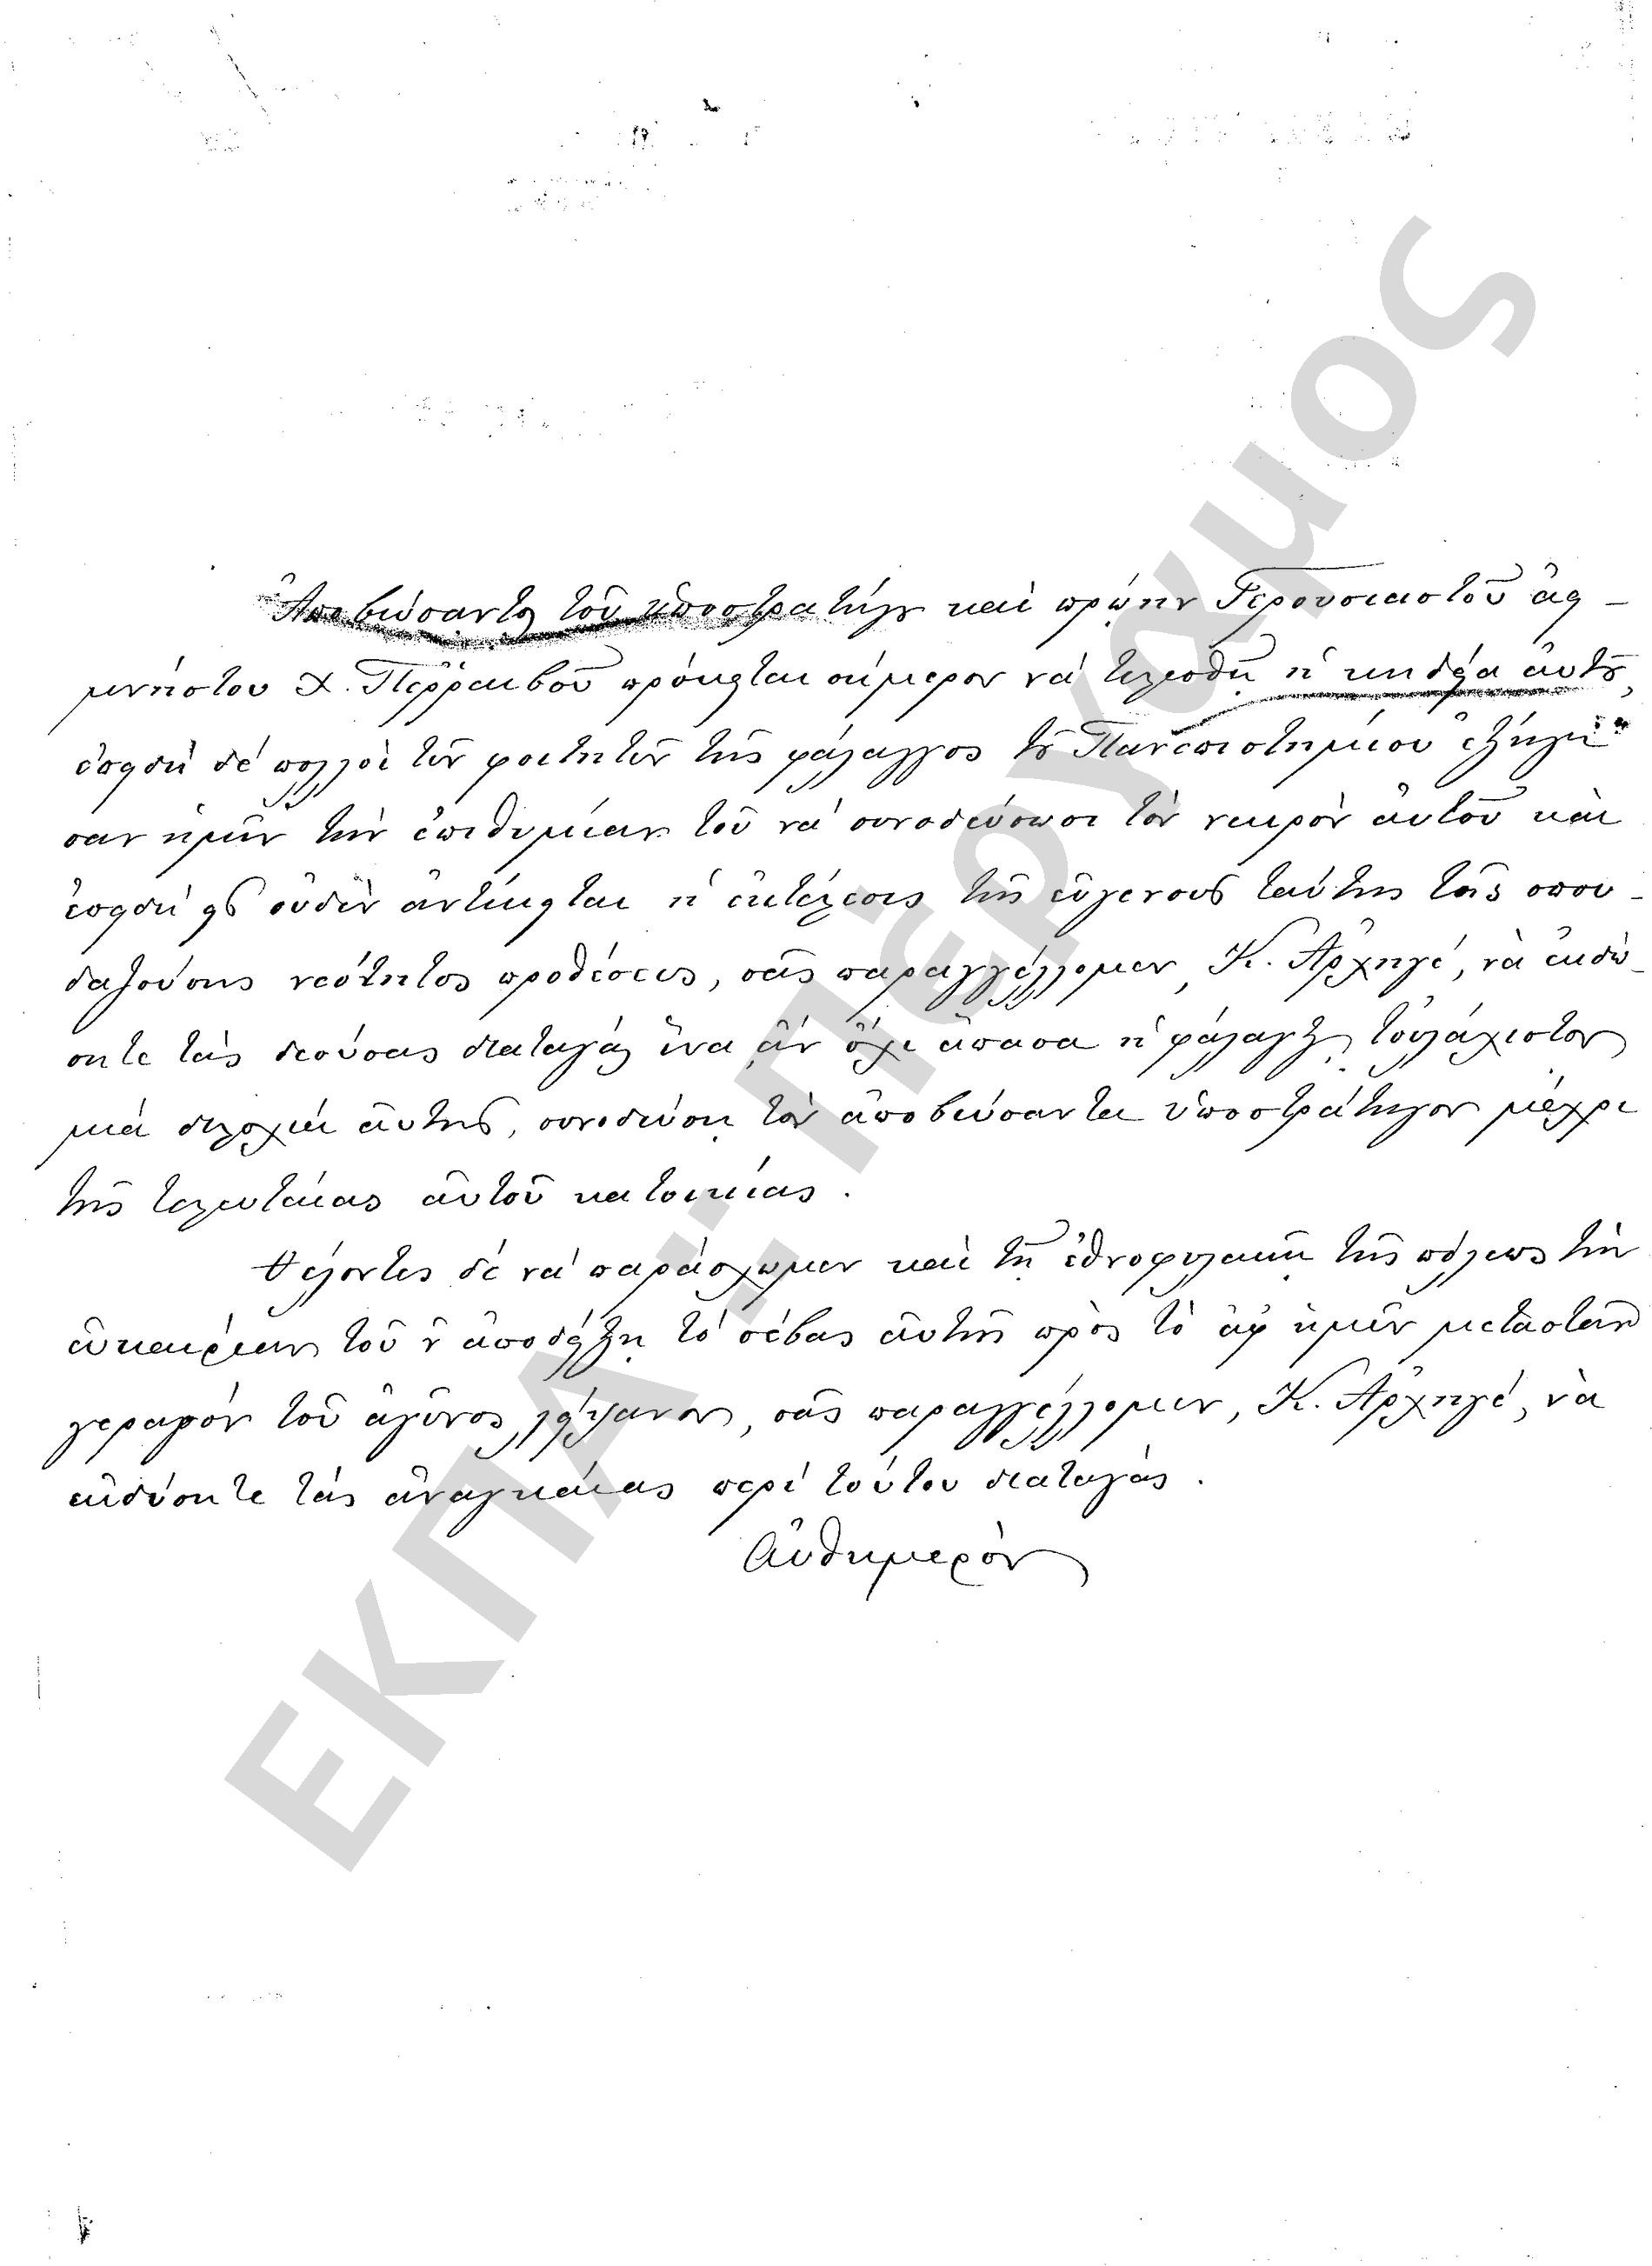 Ἀποβιώσαντος τοῦ ὑποστρατήγου καὶ πρώην Γερουσιαστοῦ ἀει-
μνήστου Χ. Περραιβοῦ πρόκειται σήμερον νὰ τελεσθῇ ἡ κηδεία αὐτοῦ,
ἐπειδὴ δὲ πολλοὶ τῶν φοιτητῶν τῆς φάλαγγος τοῦ Πανεπιστημίου ἐξήτη
σαν ἡμῖν τὴν ἐπιθυμίαν τοῦ νὰ συνοδεύσωσι τὸν νεκρὸν αὐτοῦ καὶ
ἐπειδὴ εἰς οὐδὲν ἀντίκειται ἡ ἐκτέλεσις τῆς εὐγενοῦς ταύτης τῆς σπου-
δαζούσης νεότητος προθέσεως, σᾶς παραγγέλλομεν, Κ. Ἀρχηγέ, νὰ ἐκδώ-
σητε τὰς δεούσας διαταγὰς ἵνα ἂν ὄχι ἅπασα ἡ φάλαγξ, τοὐλάχιστον
μία διλοχία αὐτῆς, συνοδεύσῃ τὸν ἀποβιώσαντα ὑποστράτηγον μέχρι
τῆς τελευταίας αὐτοῦ κατοικίας.
Θέλοντες δὲ νὰ παράσχωμεν καὶ τῇ ἐθνοφυλακῇ τῆς πόλεως τὴν
εὐκαιρίαν τοῦ ν' ἀποδείξῃ τὸ σέβας αὐτῆς πρὸς τὸ ἀφ' ἡμῶν μεταστὰν
γεραρὸν τοῦ ἀγῶνος λείψανον, σᾶς παραγγέλλομεν, Κ. Ἀρχηγέ, νὰ
ἐκδώσητε τὰς ἀναγκαίας περὶ τούτου διαταγάς.
Αὐθημερὸν
ΕΚΠΑ - Πέργαμος